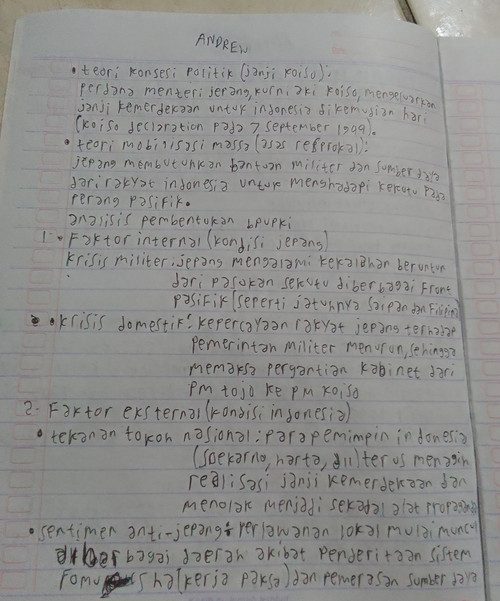 ANDREW
• teori konsesi politik (janji koiso):
perdana menteri jerang, kurniaki koiso, mengeluarkan
janji kemerdekaan untuk indonesia dikemudian hari
(koiso declaration pada 7 september 1944).
• teori mobilisasi massa (asas resiprokal):
jepang membutuhkan bantuan militer dan sumber daya
dari rakyat indonesia untuk menghadapi sekutu pada
perang pasifik.
analisis pembentukan bpupki
1. • Faktor internal (kondisi jepang)
krisis militer: jepang mengalami kekalahan beruntun
dari pasukan sekutu diberbagai front
pasifik (seperti jatuhnya saipan dan filipin)
• krisis domestik: kepercayaan rakyat jepang terhadap
pemerintah militer menurun, sehingga
memaksa pergantian kabinet dari
PM tojo ke PM koiso
2. Faktor eksternal (kondisi indonesia)
• tekanan tokoh nasional: para pemimpin indonesia
(soekarno, harta, dll) terus menagih
realisasi janji kemerdekaan dan
menolak menjadi sekadar alat propaganda
• sentimen anti-jepang: perlawanan lokal mulai muncul
berbagai daerah akibat penderitaan sistem
romusha (kerja paksa) dan pemerasan sumber daya